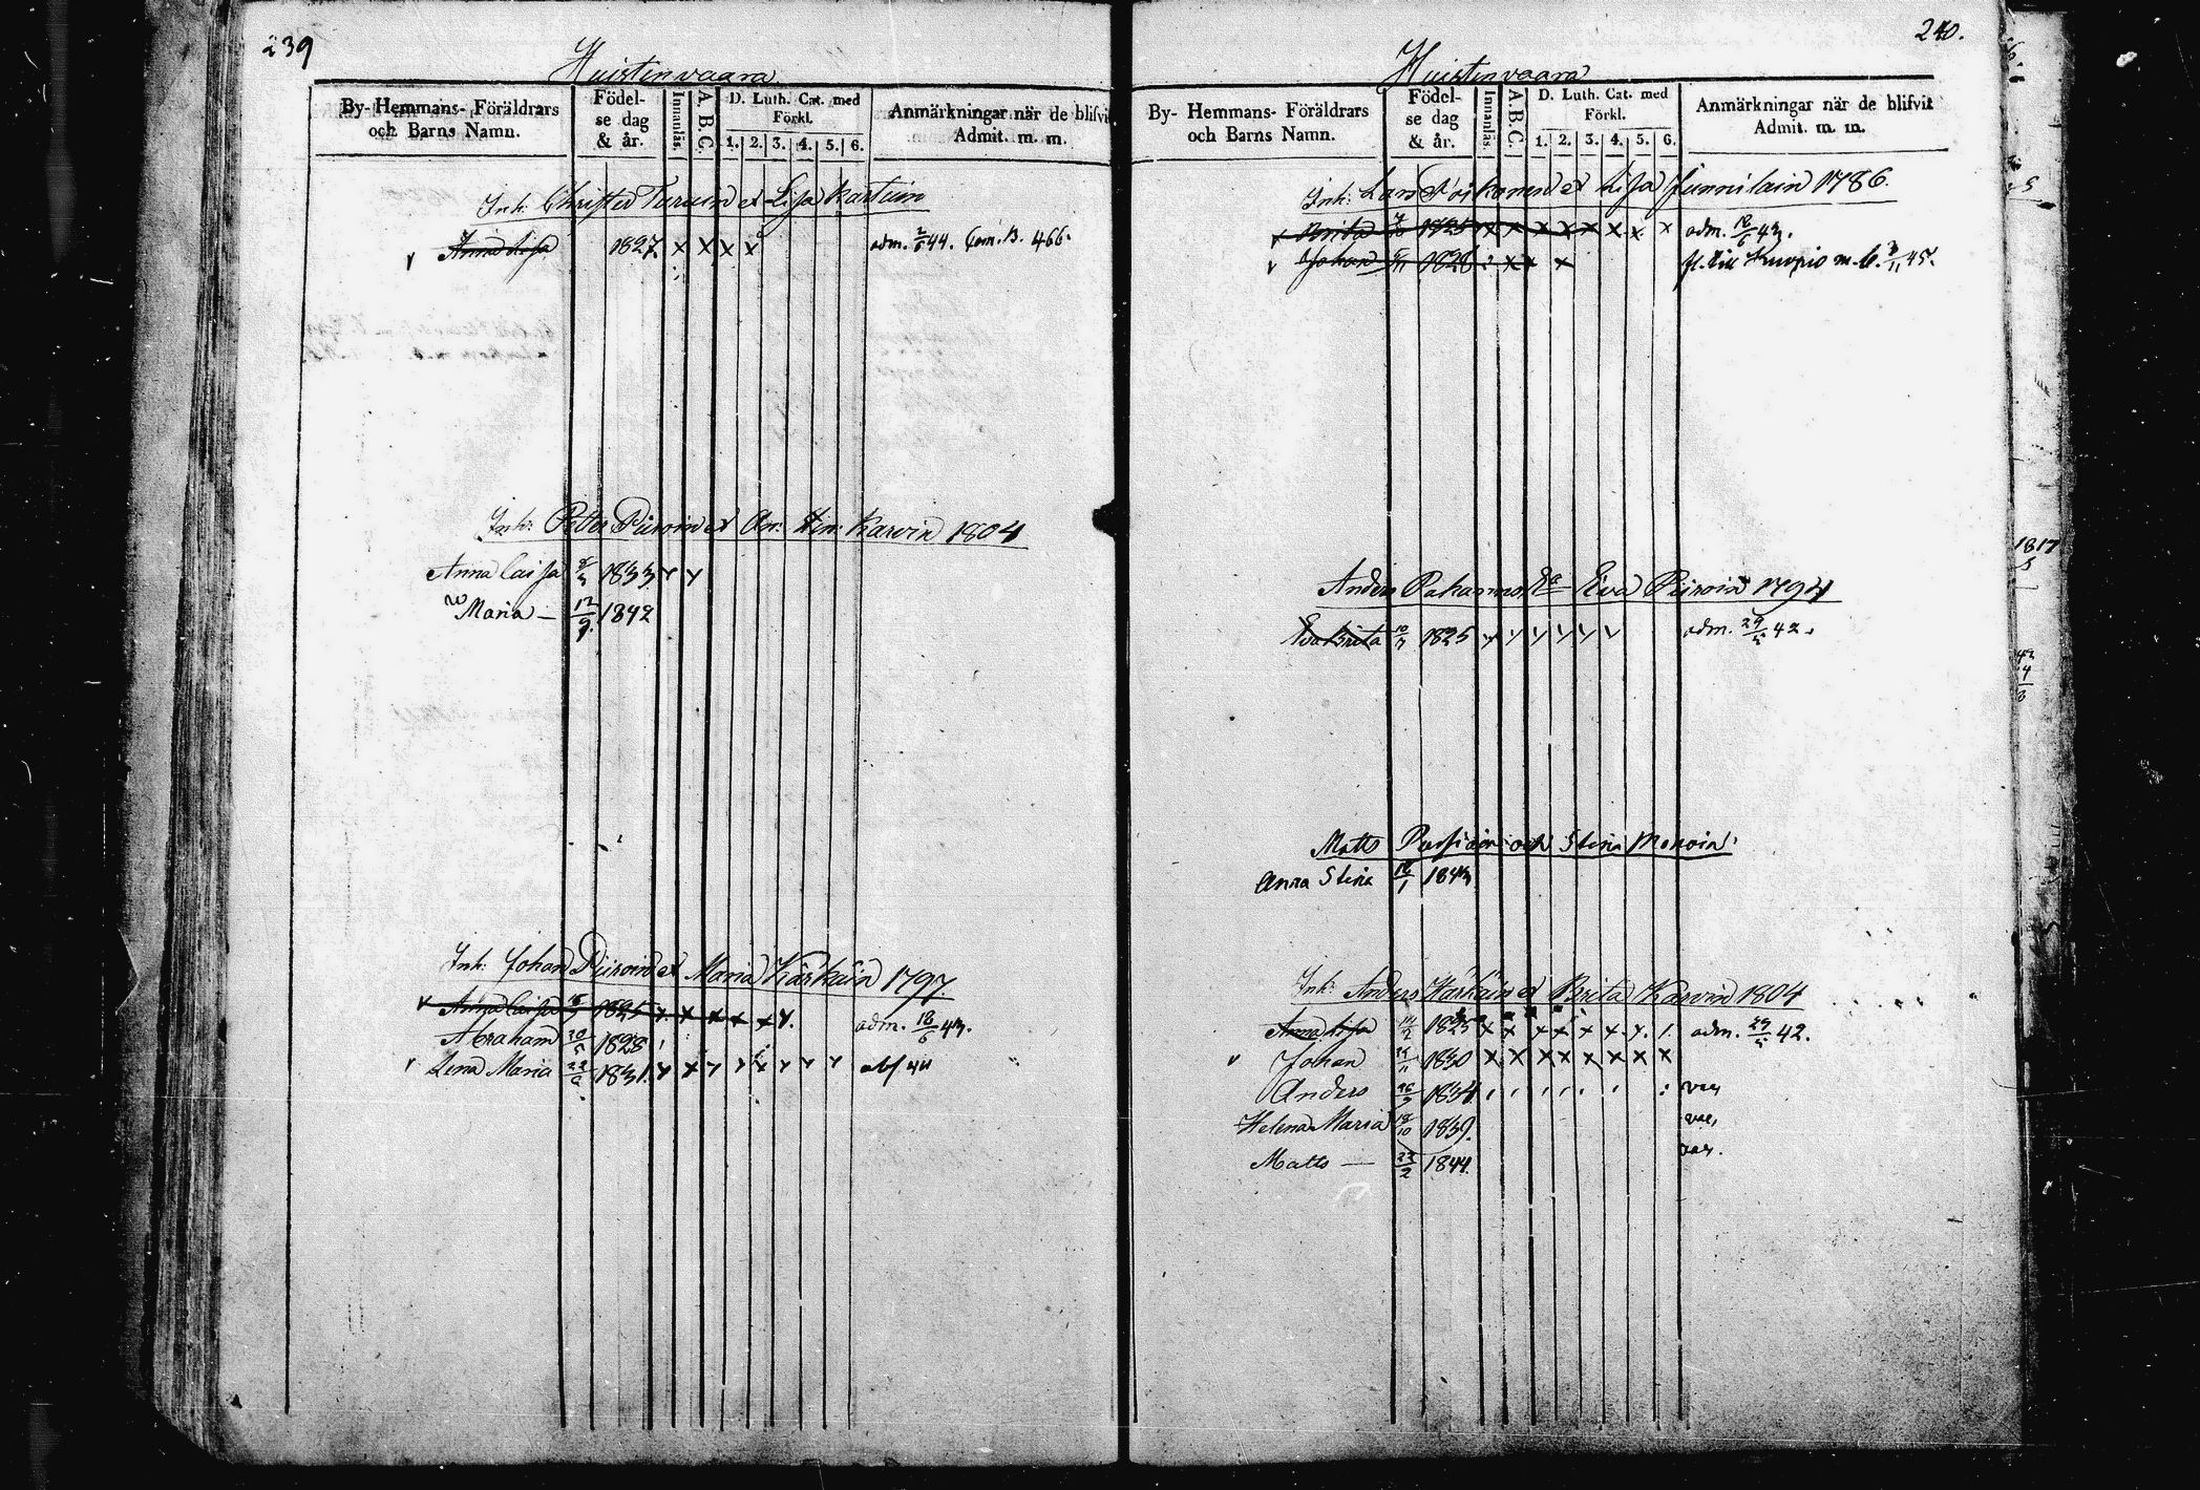 239
Huistenvaara
By- Hemmans- Föräldrars och Barns Namn.
Födelse dag & år.
Innanläs.
A. B. C.
D. Luth. Cat. med Förkl.
1. 2. 3. 4. 5. 6.
Anmärkningar när de blifvit Admit. m. m.
Inh: Christer Turuin et Lisa Kartuin
v Anna Lisa 1827. x x x x adm. 2/6 44. Com. B. 466.
Inh: Petter Piiroin et An: Karvin 1804
Anna Caisa 1833 y y
Maria — 12/9. 1842
Inh: Johan Piiroin et Maria Kärkäin 1797.
v Anna Caisa 1825 y. x x x x y. adm. 18/6 43.
Abraham 1828
v Lena Maria 1831. y x y y x y y y abs 44
240.
Huistenvaara
By- Hemmans- Föräldrars och Barns Namn.
Födelse dag & år.
Innanläs.
A. B. C.
D. Luth. Cat. med Förkl.
1. 2. 3. 4. 5. 6.
Anmärkningar när de blifvit Admit. m. m.
Inh: Lars et Lisa Junnilain 1786.
v Brita 1825 x x x x x x x x adm. 18/6 43.
v Johan 1828 : x x x fl. till Kuopio m. b. 3/11 45.
Anders Pakanen Eva Piiroin 1794
Eva Brita 1825 y y y y y y adm. 29/5 42.
Matts och Stina Monoin
Anna Stina 18/1 1843
Inh: Anders Härkäin et Brita Karvin 1804
Anna Lisa 1825 x x y x x x y. 1. adm. 29/5 42.
v Johan 1830 x x x x x x x x
Anders 1834. vac,
Helena Maria 18/10 1839. vac,
Matts — 23/2 1844. vac.
1817